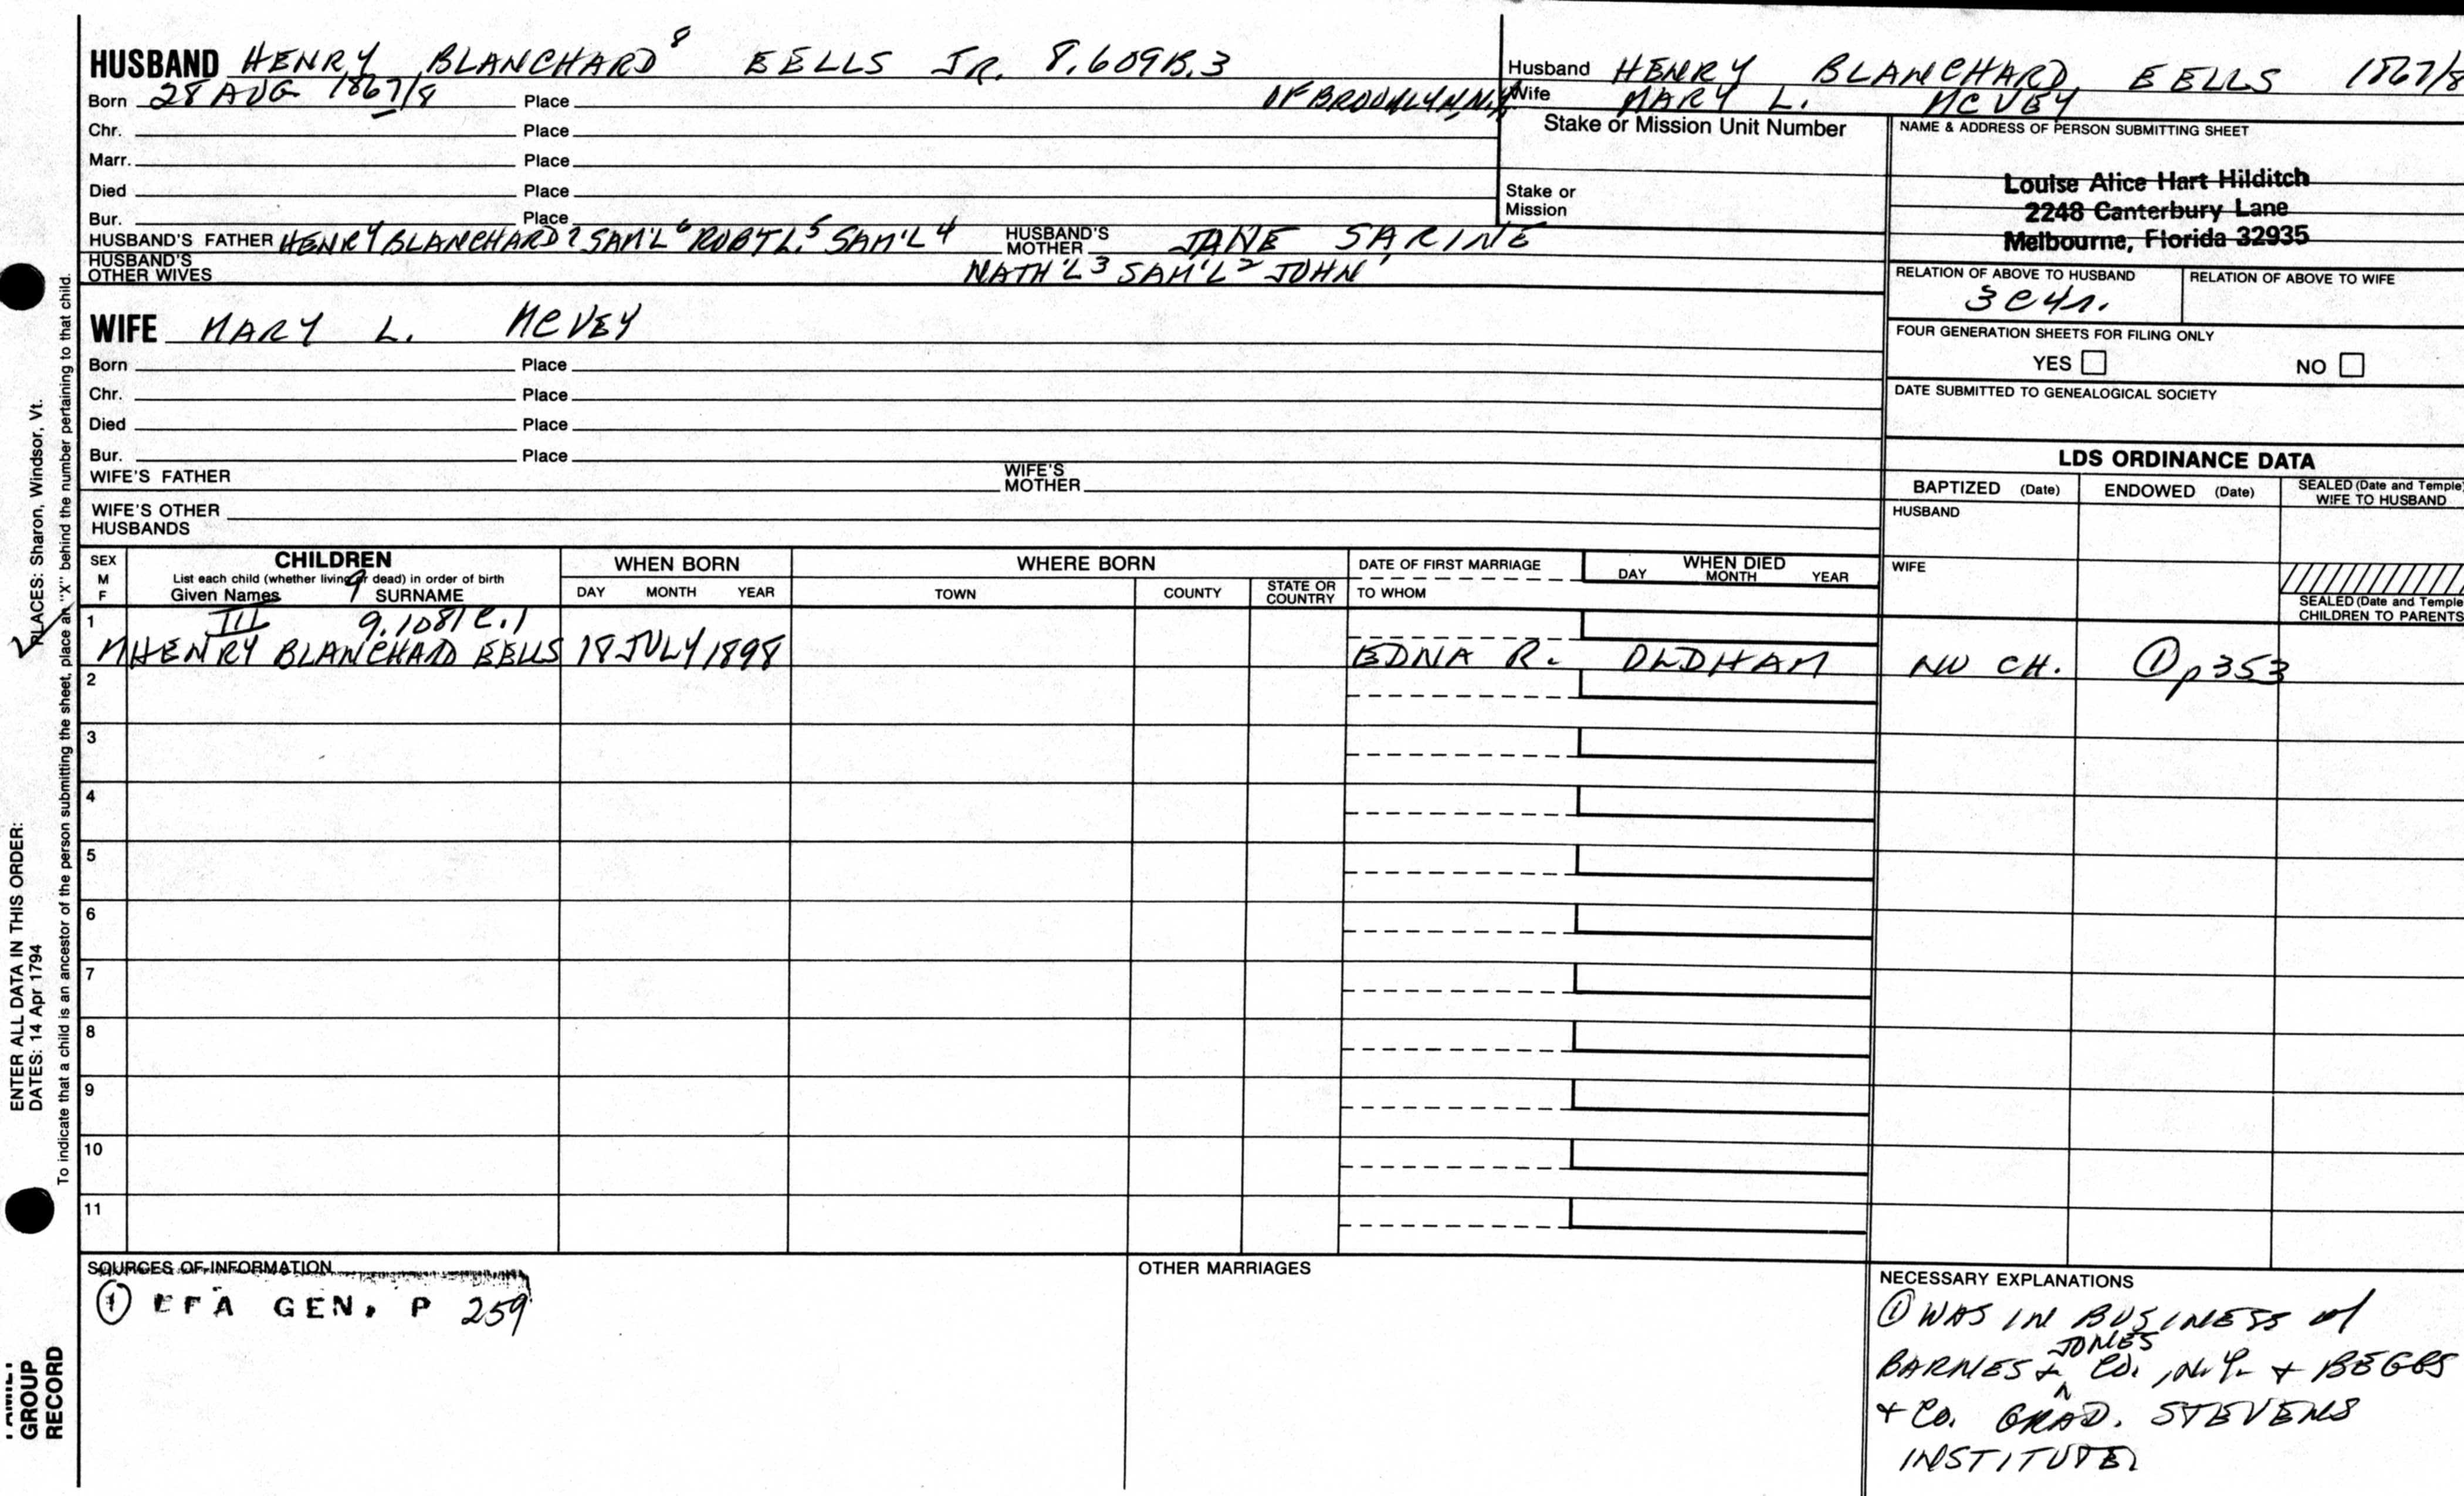 HUSBAND HENRY BLANCHARD⁸ EELLS JR. 8.609B.3
Born 28 AUG 1867/8 Place OF BROOKLYN, N.Y.
Chr. Place
Marr. Place
Died Place
Bur. Place
HUSBAND'S FATHER HENRY BLANCHARD⁷ SAM'L⁶ ROBT L.⁵ SAM'L⁴ HUSBAND'S MOTHER JANE SARINE
HUSBAND'S OTHER WIVES NATH'L³ SAM'L² JOHN¹
WIFE MARY L. MCVEY
Born Place
Chr. Place
Died Place
Bur. Place
WIFE'S FATHER WIFE'S MOTHER
WIFE'S OTHER HUSBANDS
Husband HENRY BLANCHARD EELLS 1867/8
Wife MARY L. MCVEY
Stake or Mission Unit Number
Stake or Mission
NAME & ADDRESS OF PERSON SUBMITTING SHEET
Louise Alice Hart Hilditch
2248 Canterbury Lane
Melbourne, Florida 32935
RELATION OF ABOVE TO HUSBAND RELATION OF ABOVE TO WIFE
3C4r.
FOUR GENERATION SHEETS FOR FILING ONLY
YES NO
DATE SUBMITTED TO GENEALOGICAL SOCIETY
LDS ORDINANCE DATA
BAPTIZED (Date) ENDOWED (Date) SEALED (Date and Temple) WIFE TO HUSBAND
HUSBAND
WIFE
SEALED (Date and Temple) CHILDREN TO PARENTS
SEX M F
CHILDREN
List each child (whether living or dead) in order of birth
Given Names 9 SURNAME
WHEN BORN
DAY MONTH YEAR
WHERE BORN
TOWN COUNTY STATE OR COUNTRY
DATE OF FIRST MARRIAGE
TO WHOM
WHEN DIED
DAY MONTH YEAR
1 III 9.1081C.1
M HENRY BLANCHARD EELLS 18 JULY 1898 EDNA R. OLDHAM NO CH. ① p353
2
3
4
5
6
7
8
9
10
11
SOURCES OF INFORMATION
① EFA GEN. P 259
OTHER MARRIAGES
NECESSARY EXPLANATIONS
① WAS IN BUSINESS w/
JONES
BARNES & ^ CO. , N.Y. + BEGGS
+ CO. GRAD. STEVENS
INSTITUTE
PLACES: Sharon, Windsor, Vt.
ENTER ALL DATA IN THIS ORDER:
DATES: 14 Apr 1794
To indicate that a child is an ancestor of the person submitting the sheet, place an "X" behind the number pertaining to that child.
FAMILY
GROUP
RECORD